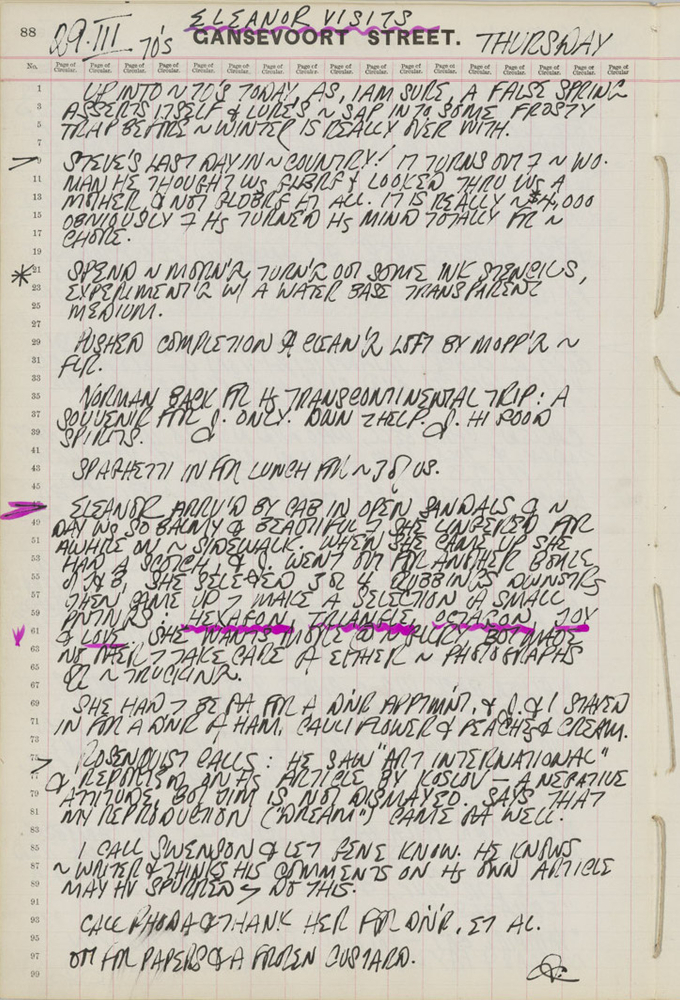 ELEANOR VISITS
88 29.III 70's GANSEVOORT STREET. THURSDAY
No. Page of Circular. Page of Circular. Page of Circular. Page of Circular. Page of Circular. Page of Circular. Page of Circular. Page of Circular. Page of Circular. Page of Circular. Page of Circular. Page of Circular. Page of Circular. Page of Circular.
1 UP INTO ~ 70'S TODAY, AS, I AM SURE, A FALSE SPRING
3 ASSERTS ITSELF & LURES ~ SAP INTO SOME FROSTY
5 TRAP BEFORE ~ WINTER IS REALLY OVER WITH.
7
STEVE'S LAST DAY IN ~ COUNTRY! IT TURNS OUT ~ WO-
11 MAN HE THOUGHT WS & LOOKED THRU WS A
13 MOTHER, & NOT AT ALL. IT IS REALLY ~ $4,000
15 OBVIOUSLY HS TURNED HS MIND TOTALLY FR ~
17 CHORE.
19
* 21 SPEND ~ MORN'G TURN'G OUT SOME INK STENCILS,
23 EXPERIMENT'G W/ A WATER BASE TRANSPARENT
25 MEDIUM.
27
29 PUSHED COMPLETION CLEAN'G LOFT BY MOPP'G ~
31 FLR.
33
35 NORMAN BACK FR HS TRANSCONTINENTAL TRIP: A
37 SOUVENIR FOR J. ONLY. DWN HELP J. HI GOOD
39 SPIRITS.
41
43 SPAGHETTI IN FOR LUNCH FR ~ 3 US.
45
ELEANOR ARRV'D BY CAB IN OPEN SANDALS & ~
49 DAY WS SO BALMY & BEAUTIFUL SHE LINGERED FOR
51 AWHILE ON ~ SIDEWALK. WHEN SHE CAME UP SHE
53 HAD A SCOTCH, & J. WENT OUT FOR ANOTHER BOTTLE
55 J & B. SHE SELECTED 3 OR 4 RUBBINGS DWNSTRS
57 THEN CAME UP MAKE A SELECTION SMALL
59 PNTNGS: HEXAGON, TRIANGLE, OCTAGON, JOY
61 & LOVE. SHE WANTS BUT MADE
63 NO OTHER TAKE CARE EITHER ~ PHOTOGRAPHS
65 OR ~ TRUCKING.
67
69 SHE HAD BE FOR A DNR APPTMNT, & J. & I STAYED
71 IN FOR A DNR HAM, CAULIFLOWER & PEACHES & CREAM.
73
ROSENQUIST CALLS: HE SAW "ART INTERNATIONAL"
77 & REPORTED ON HS ARTICLE BY KOSLOV — A NEGATIVE
79 ATTITUDE, BUT JIM IS NOT DISMAYED. SAYS THAT
81 MY REPRODUCTION ("DREAM") CAME WELL.
83
85 I CALL SWENSON & LET GENE KNOW. HE KNOWS
87 ~ WRITER & THINKS HIS COMMENTS ON HS OWN ARTICLE
89 MAY HV SPURRED DO THIS.
91
93 CALL RHODA & THANK HER FOR DIN'R, ET AL.
95
97 OUT FOR PAPERS & A FROZEN CUSTARD.
99